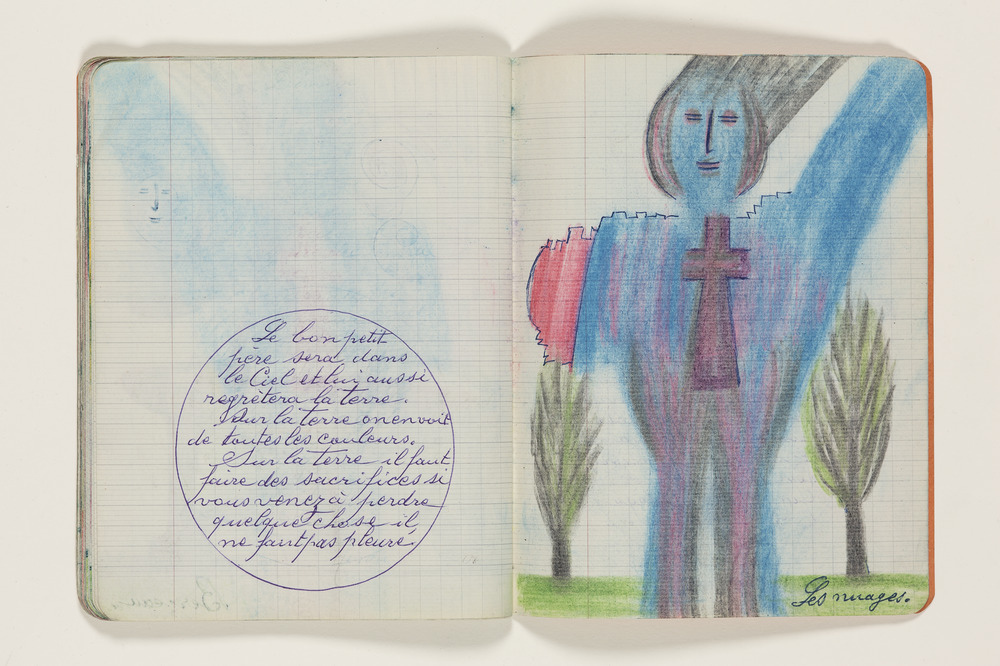 Le bon petit
père sera dans
le Ciel et lui aussi
regrètera la terre.
Sur la terre on en voit
de toutes les couleurs.
Sur la terre il faut
faire des sacrifices si
vous venez à perdre
quelque chose il
ne faut pas pleuré.
Les nuages.